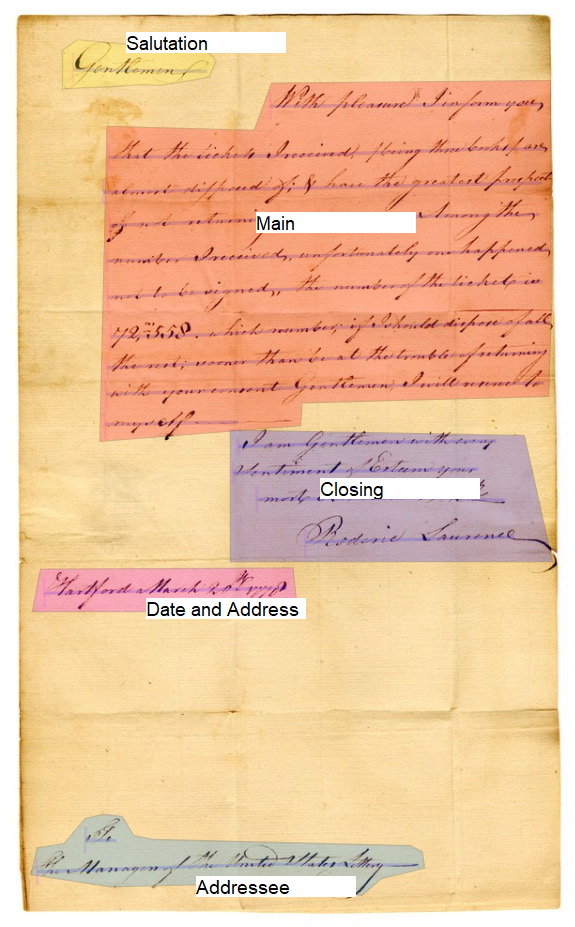 Salutation
Gentlemen
With pleasure I inform you,
that the tickets I received, (being three books) are
almost disposed of; & have the greatest prospect
of not returning Among the
Main
number I received, unfortunately one happened
not to be signed, the number of the ticket is
72,,558. which number, if I should dispose of all
the rest; sooner than be at the trouble of returning
with your consent Gentlemen, I will reserve to
myself
I am Gentlemen with every
Sentiment of Esteem your
most
Closing
Roderic Lawrence
Hartford March 30th 1778
Date and Address
To
The Managers of The United States Lottery
Addressee